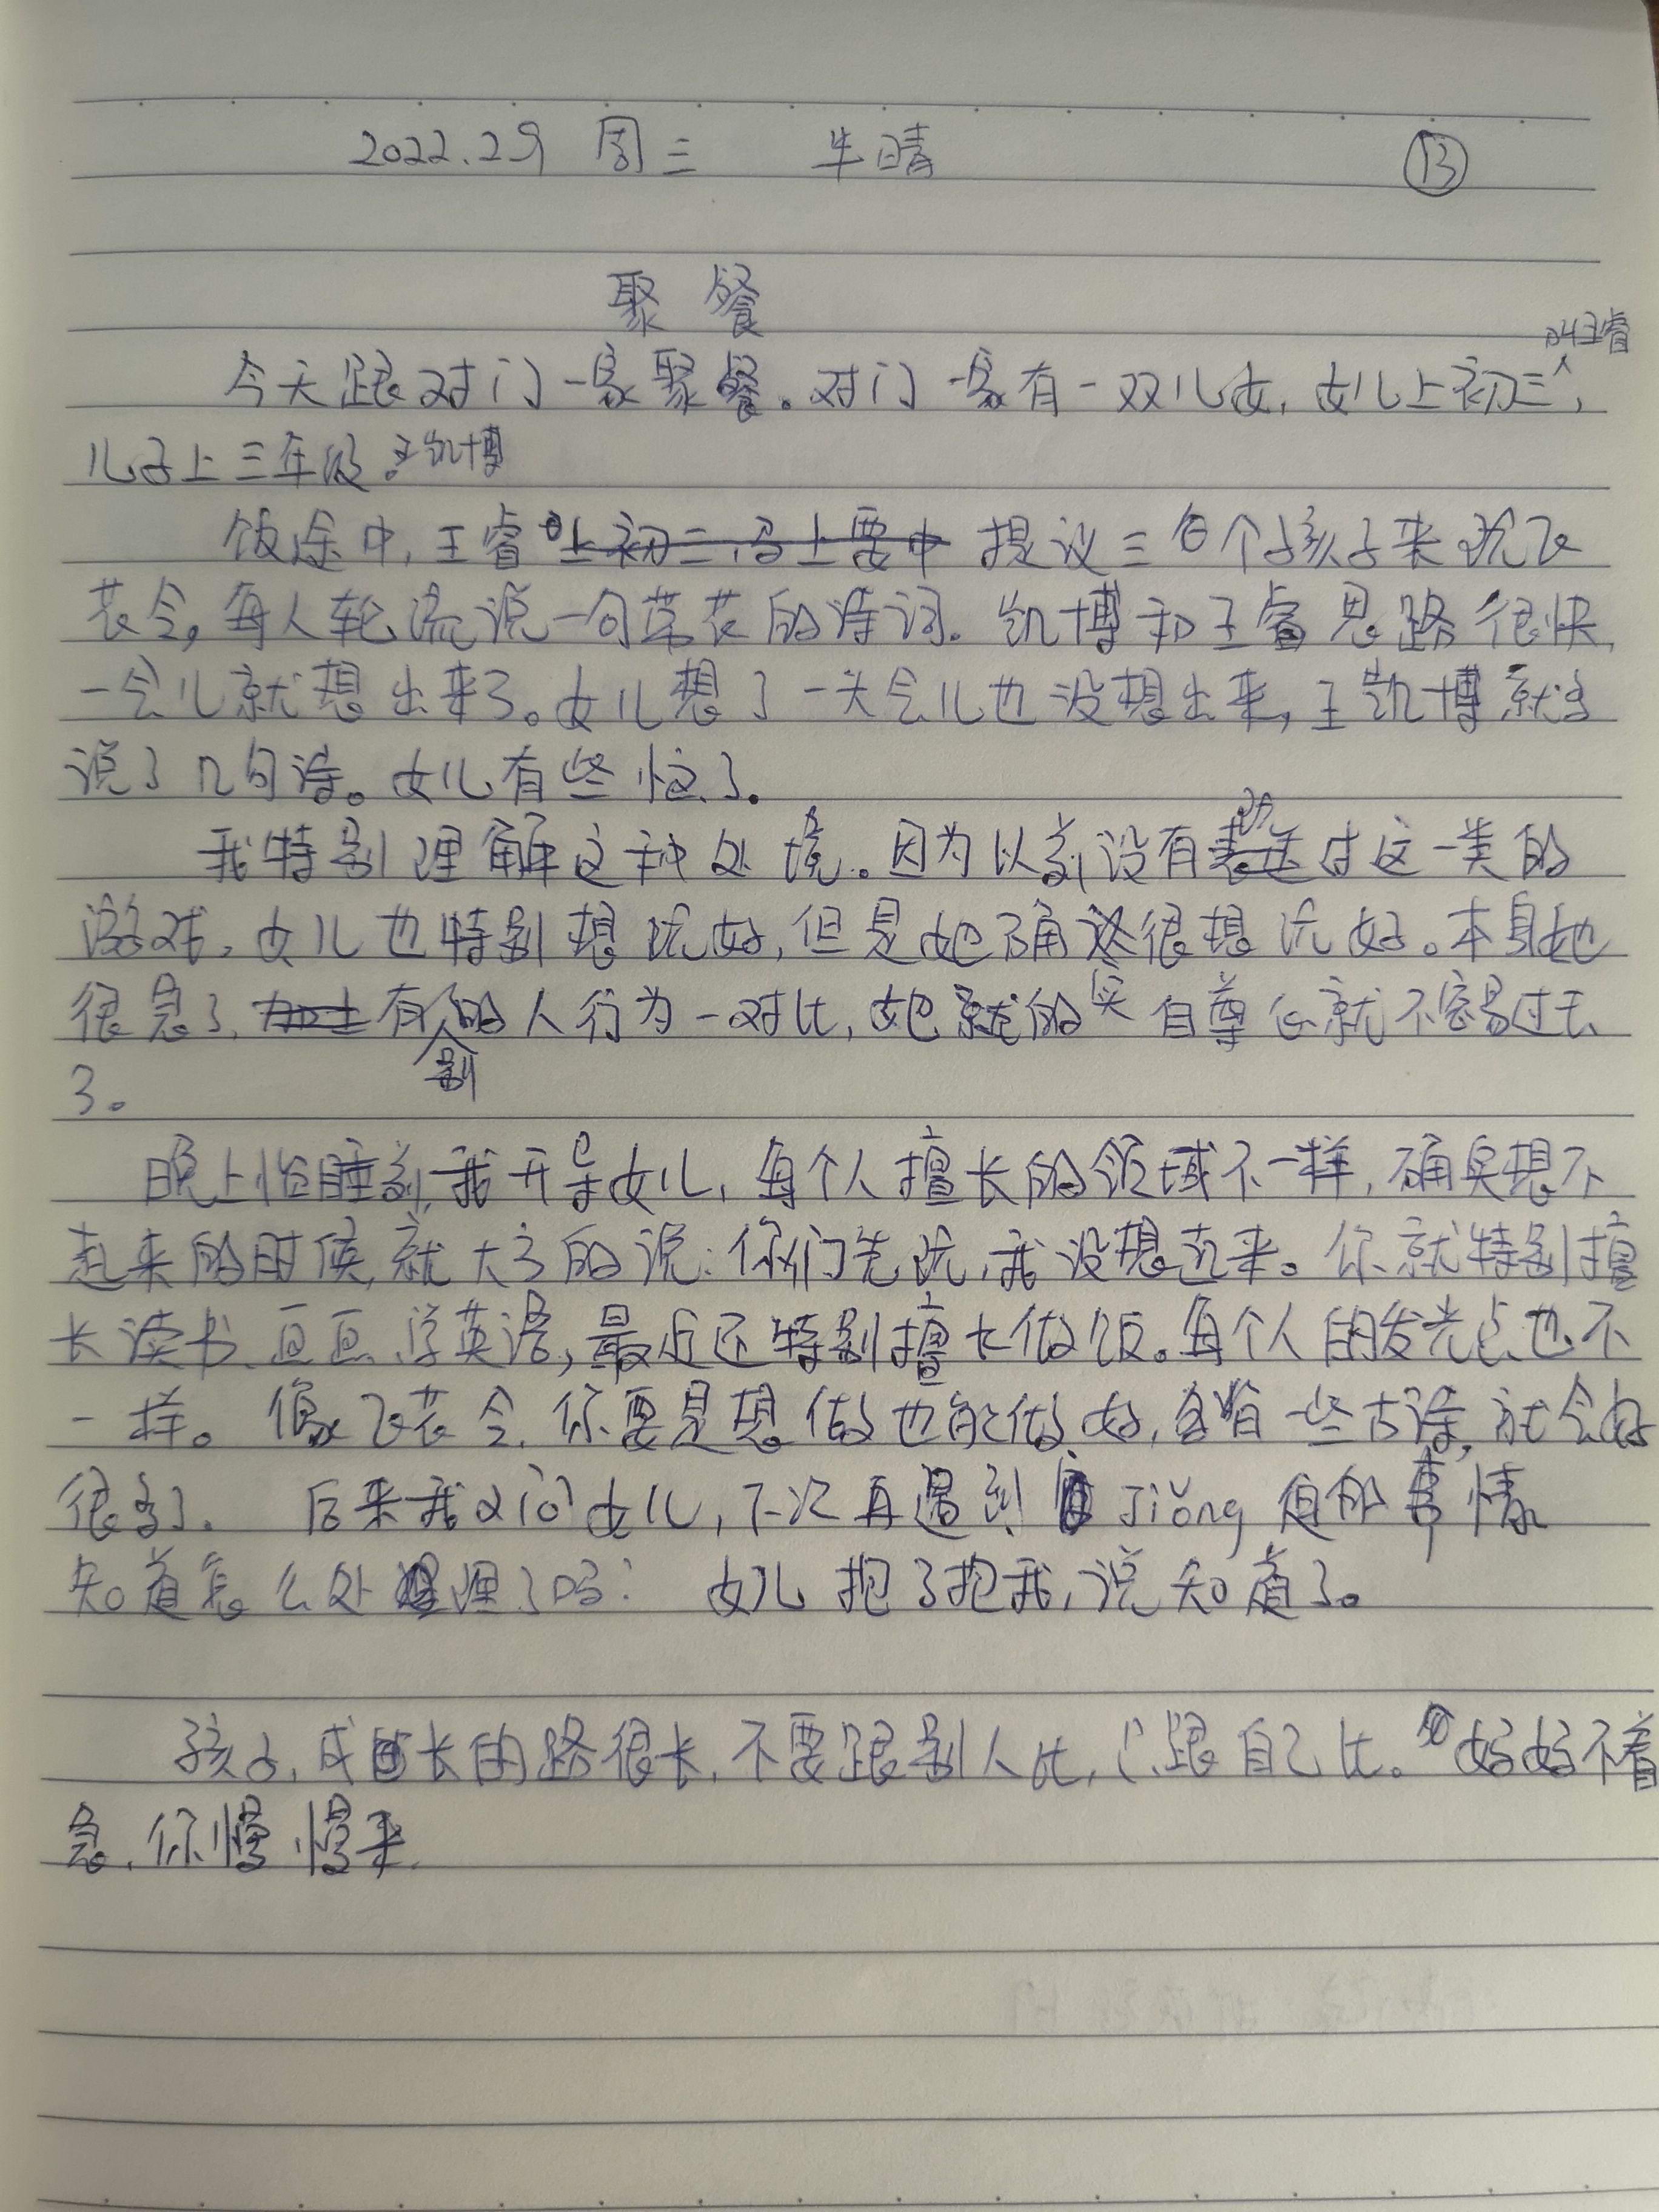 2022.2.9 周三 半晴 ⑬
聚餐
叫王睿
今天跟对门一家聚餐。对门一家有一双儿女,女儿上初三,
儿子上三年级。王凯博
饭途中,王睿 提议三个孩子来玩飞
花令,每人轮流说一句带花的诗词。凯博和王睿思路很快,
一会儿就想出来了。女儿想了一大会儿也没想出来,王凯博就多
说了几句诗。女儿有些恼了。
我特别理解这种处境。因为以前没有玩过这一类的
游戏,女儿也特别想玩好,但是她确很想玩好。本身她
很急了,有别人行为一对比,她的自尊心就不容易过去
了。
晚上临睡前,我开导女儿,每个人擅长的领域不一样,确实想不
起来的时候,就大方的说:你们先玩,我没想起来。你就特别擅
长读书、画画、学英语,最近还特别擅长做饭。每个人的发光点也不
一样。像飞花令,你要是想做也能做好,多背一些古诗,就会好
很多了。 后来我又问女儿,下次再遇到 Jiǒng 迫的事情
知道怎么处理了吗? 女儿抱了抱我,说知道了。
孩子,成长的路很长,不要跟别人比,只跟自己比。妈妈不着
急,你慢慢来.